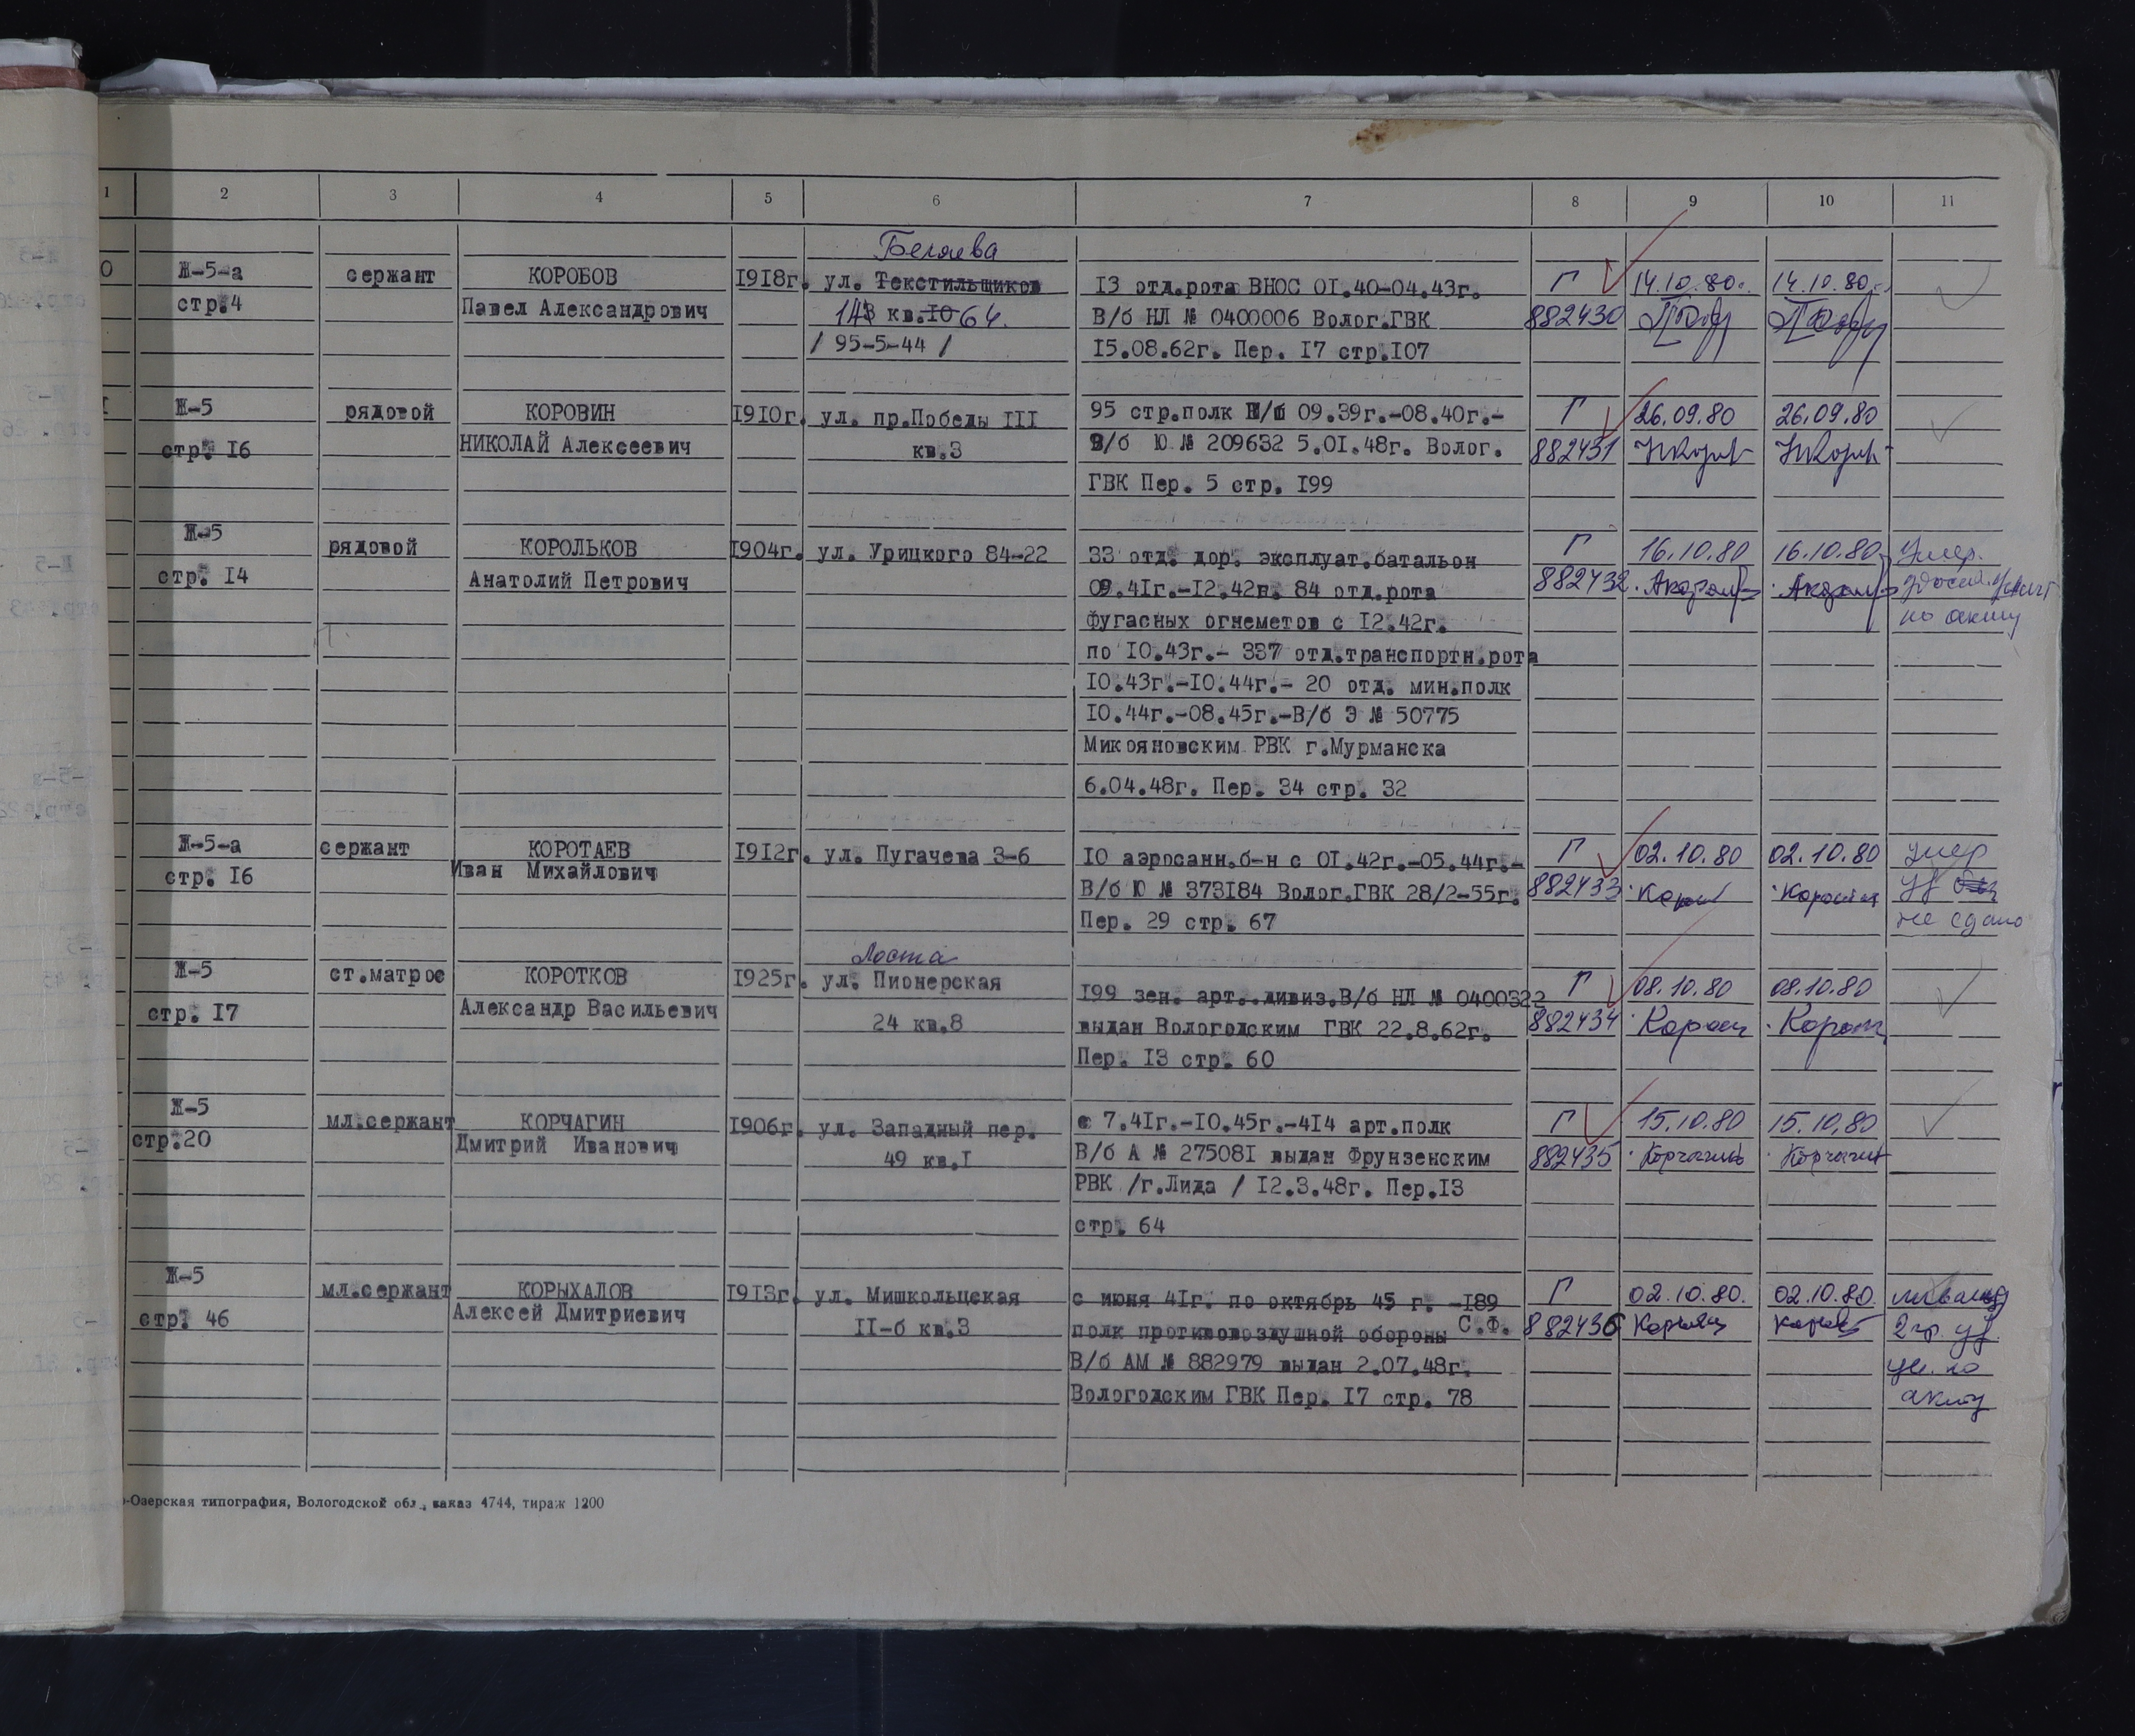 1 2 3 4 5 6 7 8 9 10 11
Беляева
0 Ж-5-а сержант КОРОБОВ 1918г. ул. Текстильщиков 13 отд.рота ВНОС 01.40-04.43г. Г 14.10.80г. 14.10.80г.
стр.4 Павел Александрович 143 кв.10 64. В/б НЛ № 0400006 Волог.ГВК 882430
/ 95-5-44 / 15.08.62г. Пер. 17 стр.107
1 Ж-5 рядовой КОРОВИН 1910г. ул. пр.Победы III 95 стр.полк П/ш 09.39г.-08.40г.- Г 26.09.80 26.09.80
стр. 16 НИКОЛАЙ Алексеевич кв.3 В/б Ю № 209632 5.01.48г. Волог. 882431
ГВК Пер. 5 стр. 199
Ж-5 рядовой КОРОЛЬКОВ 1904г. ул. Урицкого 84-22 33 отд. дор. эксплуат.батальон Г 16.10.80 16.10.80 Умер.
стр. 14 Анатолий Петрович 09.41г.-12.42г. 84 отд.рота 882432
фугасных огнеметов с 12.42г. по акту
по 10.43г.- 337 отд.транспортн.рота
10.43г.-10.44г.- 20 отд. мин.полк
10.44г.-08.45г.-В/б Э № 50775
Микояновским РВК г.Мурманска
6.04.48г. Пер. 34 стр. 32
Ж-5-а сержант КОРОТАЕВ 1912г. ул. Пугачева 3-6 10 аэросанн.б-н с 01.42г.-05.44г.- Г 02.10.80 02.10.80 умер
стр. 16 Иван Михайлович В/б Ю № 373184 Волог.ГВК 28/2-55г. 882433 уд
Пер. 29 стр. 67 не сдано
Лоста
Ж-5 ст.матрос КОРОТКОВ 1925г. ул. Пионерская 199 зен. арт..дивиз.В/б НЛ № 0400322 Г 08.10.80 08.10.80
стр. 17 Александр Васильевич 24 кв.8 выдан Вологодским ГВК 22.8.62г. 882434
Пер. 13 стр. 60
Ж-5 мл.сержант КОРЧАГИН 1906г. ул. Западный пер. с 7.41г.-10.45г.-414 арт.полк Г 15.10.80 15.10.80
стр.20 Дмитрий Иванович 49 кв.1 В/б А № 275081 выдан Фрунзенским 882435 Корчагин Корчагин
РВК /г.Лида / 12.3.48г. Пер.13
стр. 64
Ж-5 мл.сержант КОРЫХАЛОВ 1913г. ул. Мишкольцская с июня 41г. по октябрь 45 г. -189 Г 02.10.80. 02.10.80.
стр. 46 Алексей Дмитриевич II-б кв.3 полк противовоздушной обороны С.Ф. 882436 2гр. уд.
В/б АМ № 882979 выдан 2.07.48г. ун. по
Вологодским ГВК Пер. 17 стр. 78 акту
-Озерская типография, Вологодской обл., заказ 4744, тираж 1200